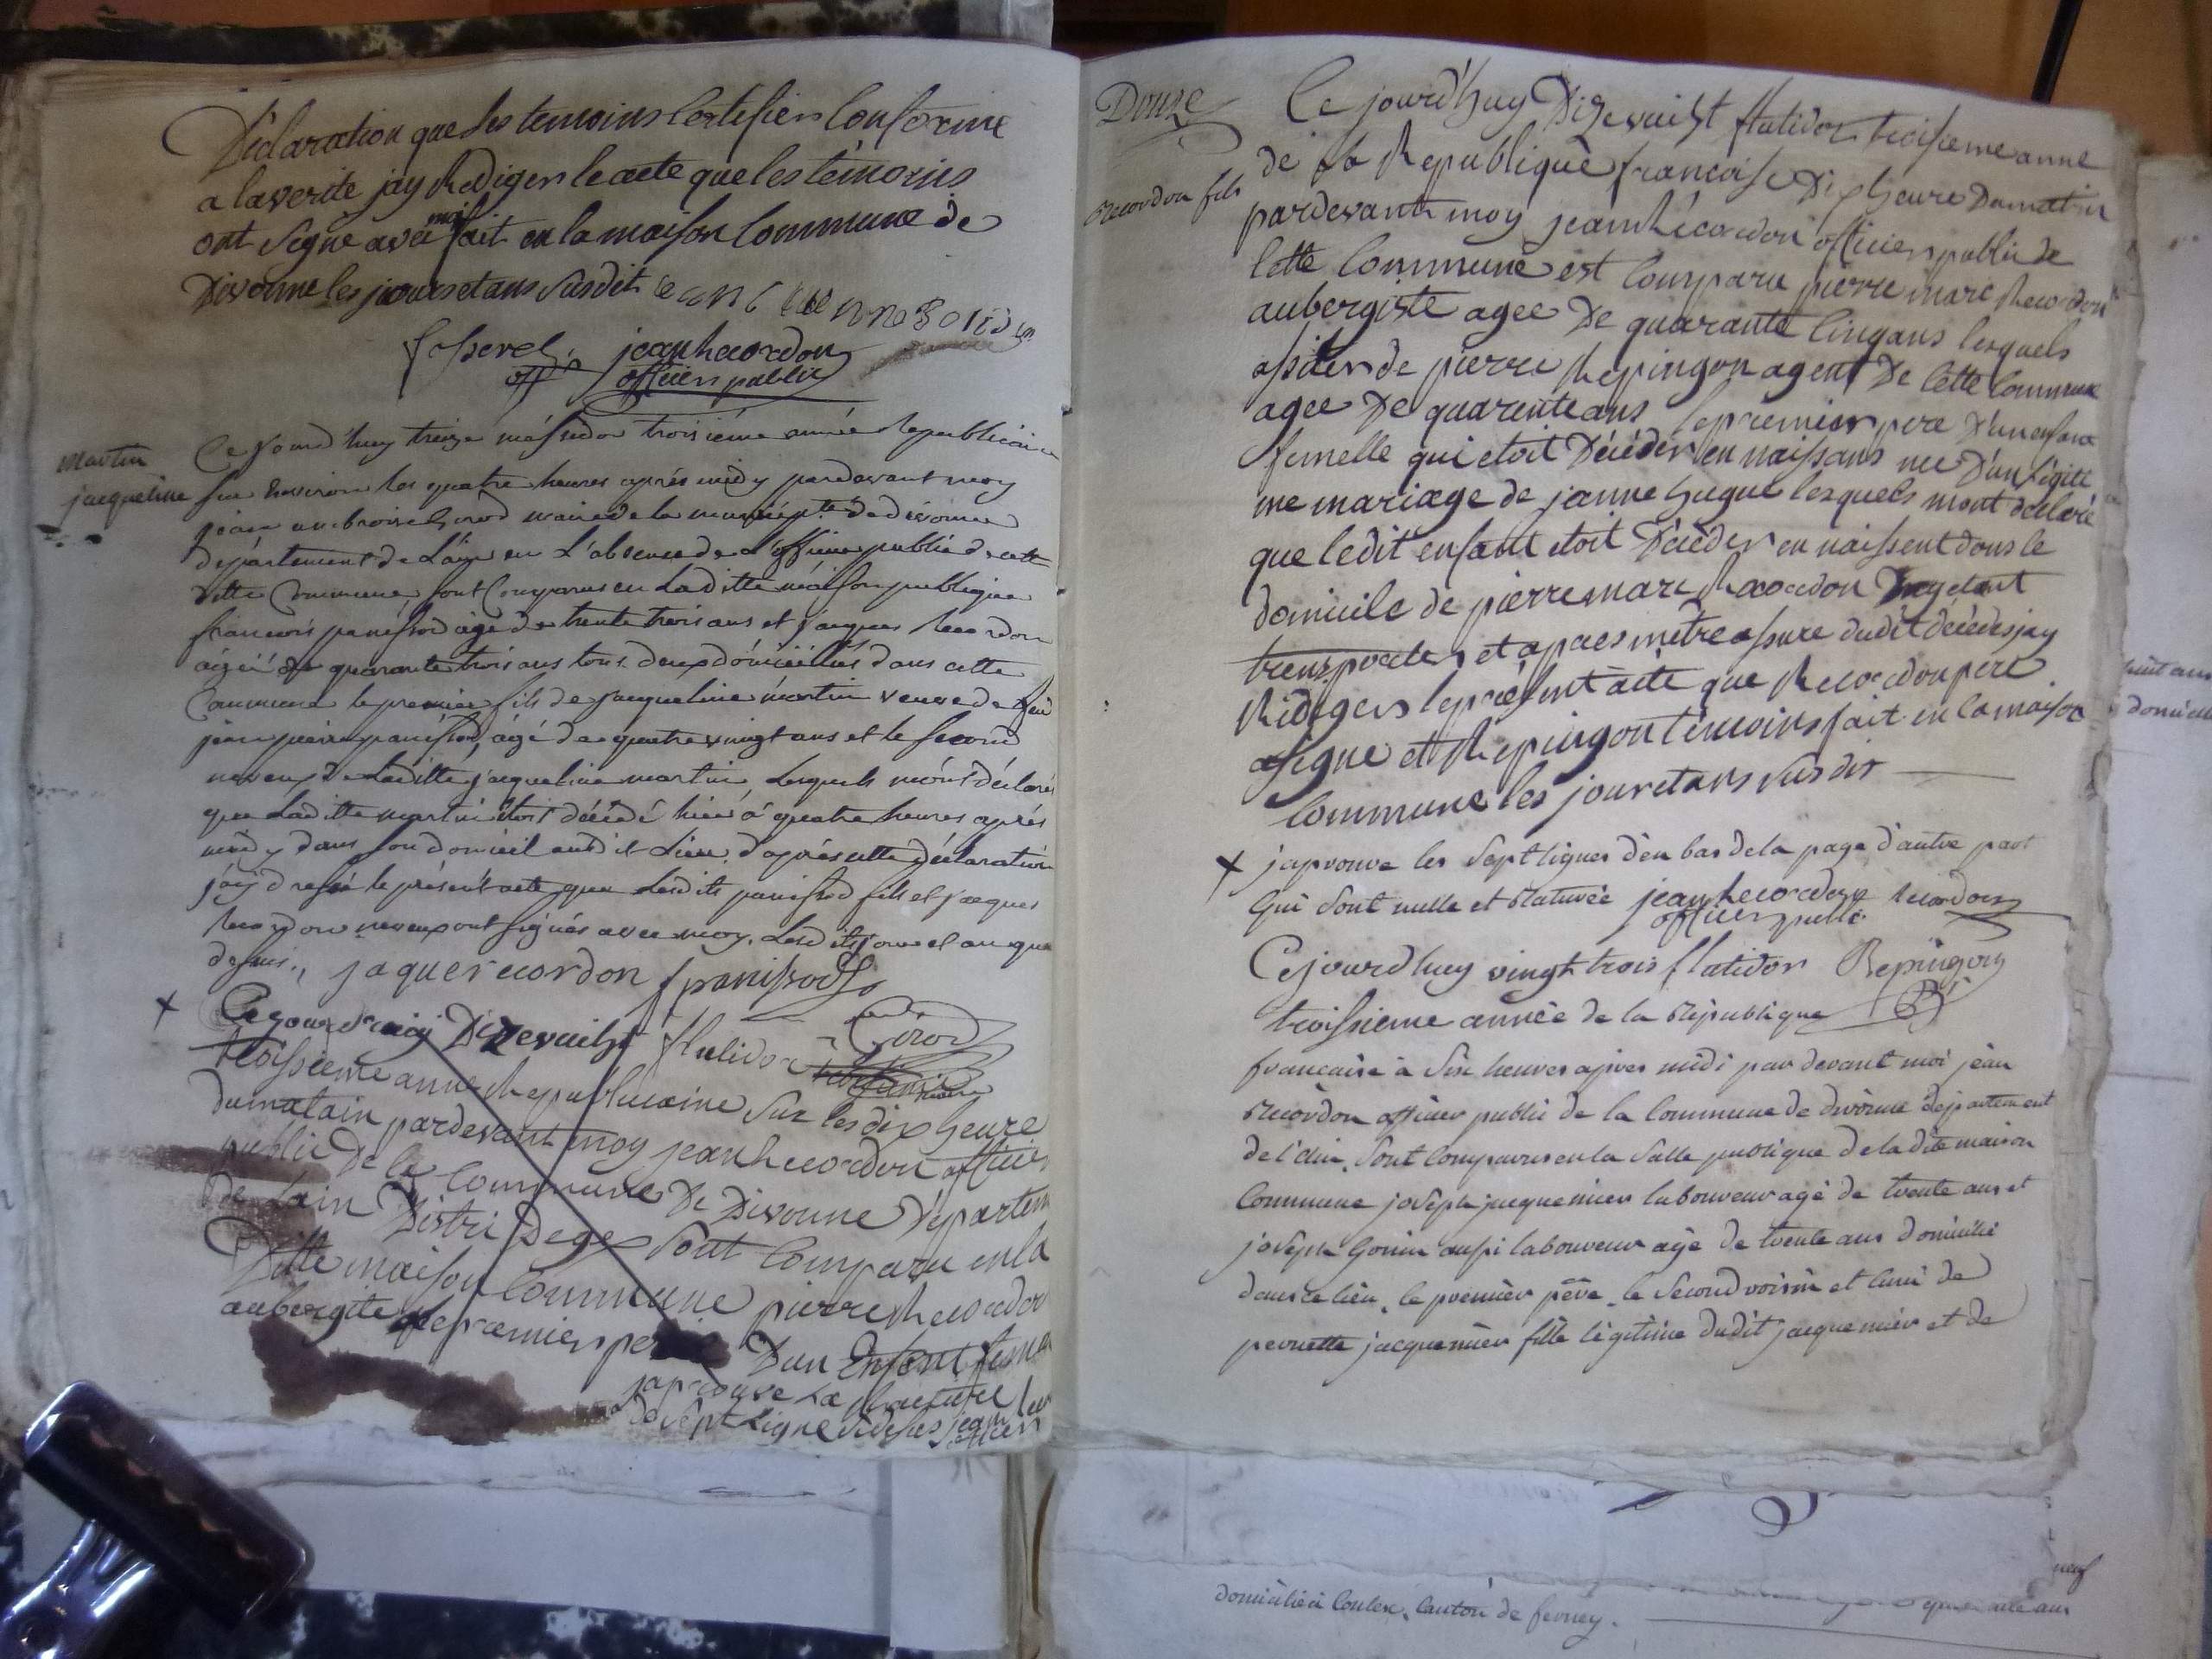 Déclaration que les temoins Certifier Conforme
a la verite jay Rediger le acte que les témoins
ont Segne avec moi fait en la maison Commune de
Divonne les jours et ans Susdit
jean Recordon
officier public
martin
jacqueline
Ce Jourd'huy treize méssidor troisiéme année Republicaine
sur Environ les quatre heures aprés midy pardevant moy
jean ambroise Girod maire de la municipté de divonne
département de L'ain en L'absence de L'officier public de cette
ditte Commune, sont Comparus en Laditte maison publique
francois panissod agé de trente trois ans et jacques Recordon
agéé de quarante trois ans tous deux dómiciliés dans cette
Commune le premier fils de jacqueline martin veuve de feu
jean pierre panissod, agé de quatre vingt ans et le second
neveux de Laditte jacqueline martin, Lesquels m'ónt déclaré
que Laditte martin étoit décédé hier à quatre heures aprés
midy dans son domicil audit Lieu, d'aprés cette déclaration
j'ay dressé le présent acte que Lesdits panissod fils et jacques
Recordon neveux ont signés avec moy. Lesdits jour et an que
dessus.
jaque recordon f panissod
Girod
x Ce jourd'huy Dizevuitt flulidor
troissieme anne Republicaine Sur les dix heure
du matain pardevant moy jean Recordon officier
public De la Commune De Divonne Departem
De Lain Distri De gex Sont Comparu en la
Ditte maison Commune pierre Recordon
aubergite le premier per D'un Enfent feme
japrouve La Rature
De Sept Ligne Sidesus jean Rec
officier
Douze
Recordon fils
Ce jourd'huy Dizevuitt flutidor troisieme anne
de la Republique francoise Dix heure Du matin
pardevant moy jean Récordon officier public de
Cette Commune est Comparu pierre marc Recordon
aubergiste agee De quarante Cinq ans lesquels
assiter de pierre Repingon agent De Cette Commune
agee De quarente ans le premier pere D'un enfant
femelle qui etoit Décéder en naissans nee D'un Légiti
me mariage de janne hugue lesquels mont déclaré
que ledit enfant etoit Décéder en naissent dans le
domicile de pierre marc Recordon My etant
trensporter, et apres m'etre assure dudit décédés jay
Rédiger le présent acte que Recordon pere
a segne et Repingon témoins fait en la maison
Commune les jour et ans Susdit
x japrouve les Sept lignes d'en bas de la page d'autre part
Qui Sont nulle et Raturée jean Recordon Recordon
officier public
Ce jourd'huy vingt trois flutidor Repingon
troissieme année de la République
francaise à Six heures apres midi par devant moi jéan
Récordon officier public de la Commune de divonne département
de l'ain. Sont Comparus en la Salle publique de ladite maison
Commune joseph jacquemier laboureur agé de trente ans et
joseph Gonin aussi laboureur agé de trente ans domicilié
dans ce lieu, le premier pére, le Second voisin et amí de
pernette jacquemier fille légitime dudit jacquemier et de
huit ans
domicilié
neuf
domicilié à Conlex, Canton de ferney.
quarante ans